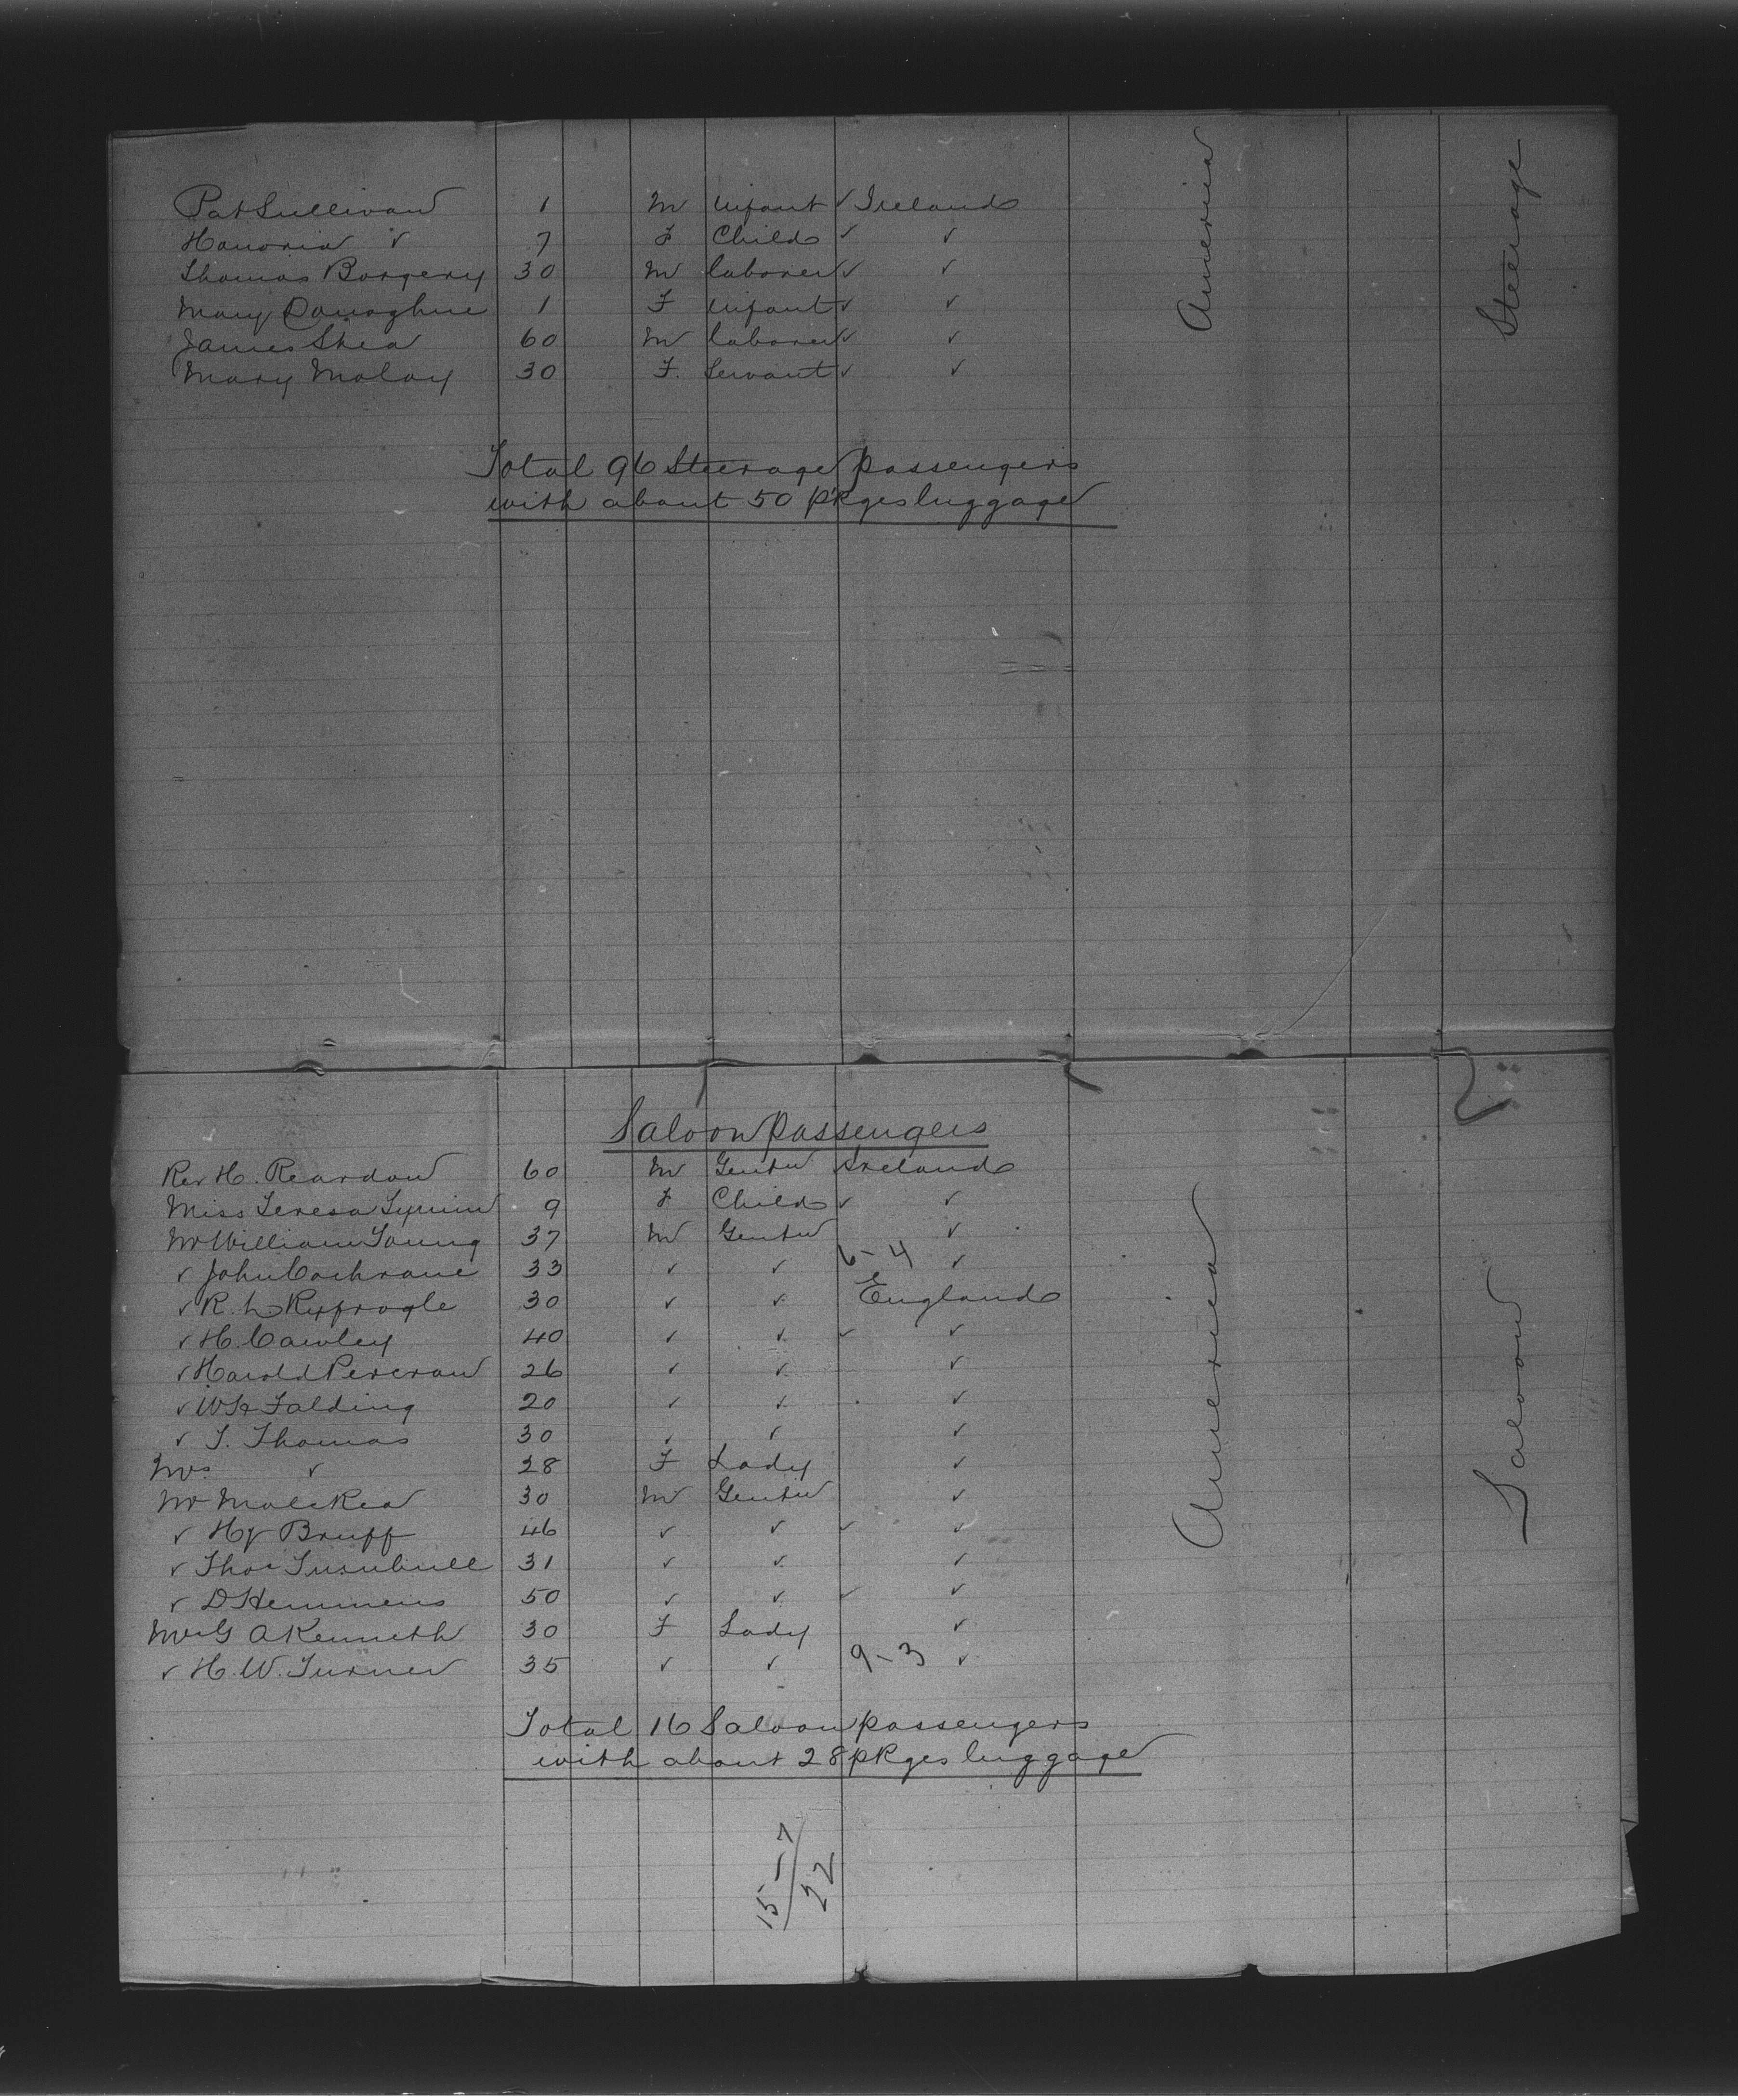 Pat Sullivan 1 M Infant ✓ Ireland
Honoria ✓ 7 F Child ✓ ✓
Thomas Borgery 30 M laborer ✓ ✓
Mary Donoghue 1 F Infant ✓ ✓
James Shea 60 M laborer ✓ ✓
Mary Moloy 30 F. Servant ✓ ✓
America
Steerage
Total 96 Steerage passengers
with about 50 pkges luggage
Saloon passengers
Rev H. Reardon 60 M Gentn Ireland
Miss Teresa 9 F Child ✓ ✓
Mr William Young 37 M Gentn ✓
✓ John Cochrane 33 ✓ ✓ 6-4 ✓
✓ R. L 30 ✓ ✓ England
✓ H. Cawley 40 ✓ ✓ ✓ ✓
✓ Harold 26 ✓ ✓ ✓
✓ Falding 20 ✓ ✓ ✓
✓ T. Thomas 30 ✓ ✓ ✓
Mrs ✓ 28 F Lady ✓
Mr 30 M Gentn ✓
✓ Hy Bruff 46 ✓ ✓ ✓ ✓
✓ Thos Turnbull 31 ✓ ✓ ✓
✓ D Hemmens 50 ✓ ✓ ✓ ✓
Mrs G A Kenneth 30 F Lady ✓
✓ H. W. Turner 35 ✓ ✓ 9-3 ✓
America
Saloon
Total 16 Saloon passengers
with about 28 pkges luggage
15-7
22